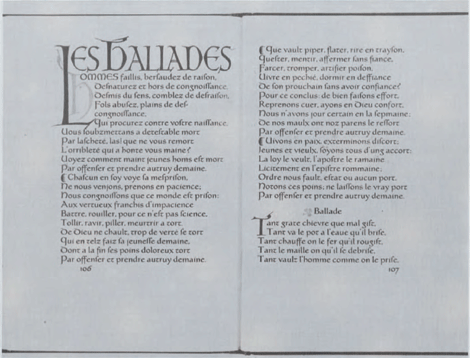 LES BALLADES
HOMMES faillis, bersaudez de raison,
Desnaturez et hors de congnoissance,
Desmis du sens, comblez de desraison,
Fols abusez, plains de des-
congnoissance,
Qui procurez contre vostre naissance,
Vous soubzmettans a detestable mort
Par lascheté, las! que ne vous remort
L'orribleté qui a honte vous maine?
Voyez comment maint jeunes homs est mort
Par offenser et prendre autruy demaine.
Chascun en soy voye sa mesprison,
Ne nous venjons, prenons en pacience;
Nous congnoissons que ce monde est prison:
Aux vertueux franchis d'impacience
Battre, rouiller, pour ce n'est pas science,
Tollir, ravir, piller, meurtrir a tort.
De Dieu ne chault, trop de verte se tort
Qui en telz faiz sa jeunesse demaine,
Dont a la fin ses poins doloreux tort
Par offenser et prendre autruy demaine.
106
Que vault piper, flater, rire en trayson,
Quester, mentir, affermer sans fiance,
Farcer, tromper, artifier poison,
Vivre en pechié, dormir en deffiance
De son prouchain sans avoir confiance?
Pour ce conclus: de bien faisons effort,
Reprenons cuer, ayons en Dieu confort,
Nous n'avons jour certain en la sepmaine;
De nos maulx ont noz parens le ressort
Par offenser et prendre autruy demaine.
Vivons en paix, exterminons discort;
Jeunes et vieulx, soyons tous d'ung accort:
La loy le veult, l'apostre le ramaine
Licitement en l'epistre rommaine;
Ordre nous fault, estat ou aucun port.
Notons ces poins; ne laissons le vray port
Par offenser et prendre autruy demaine.
Ballade
Tant grate chievre que mal gist,
Tant va le pot a l'eaue qu'il brise,
Tant chauffe on le fer qu'il rougist,
Tant le maille on qu'il se debrise,
Tant vault l'homme comme on le prise,
107